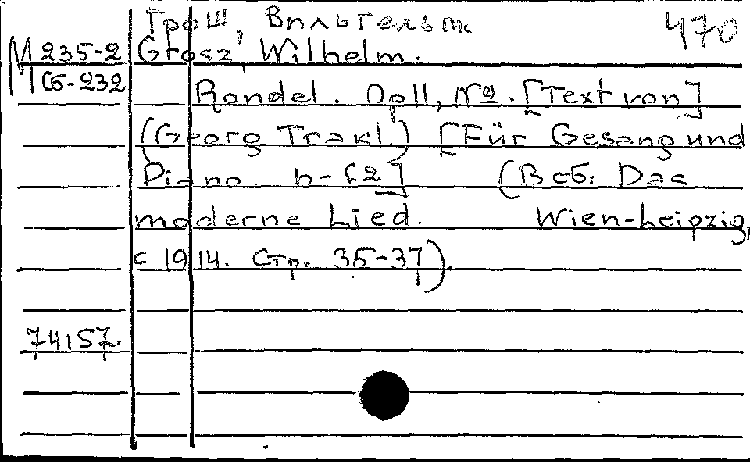 Грош, Вильгельм. 470
М 235-2 Grosz, Wilhelm.
М Сб-232 Rondel. Op11, №2. [Text von]
(Georg Trakl.) [Für Gesang und
Piano. h-f2] (В сб: Das
moderne Lied. Wien-Leipzig,
c 1914. Стр. 35-37).
74157.